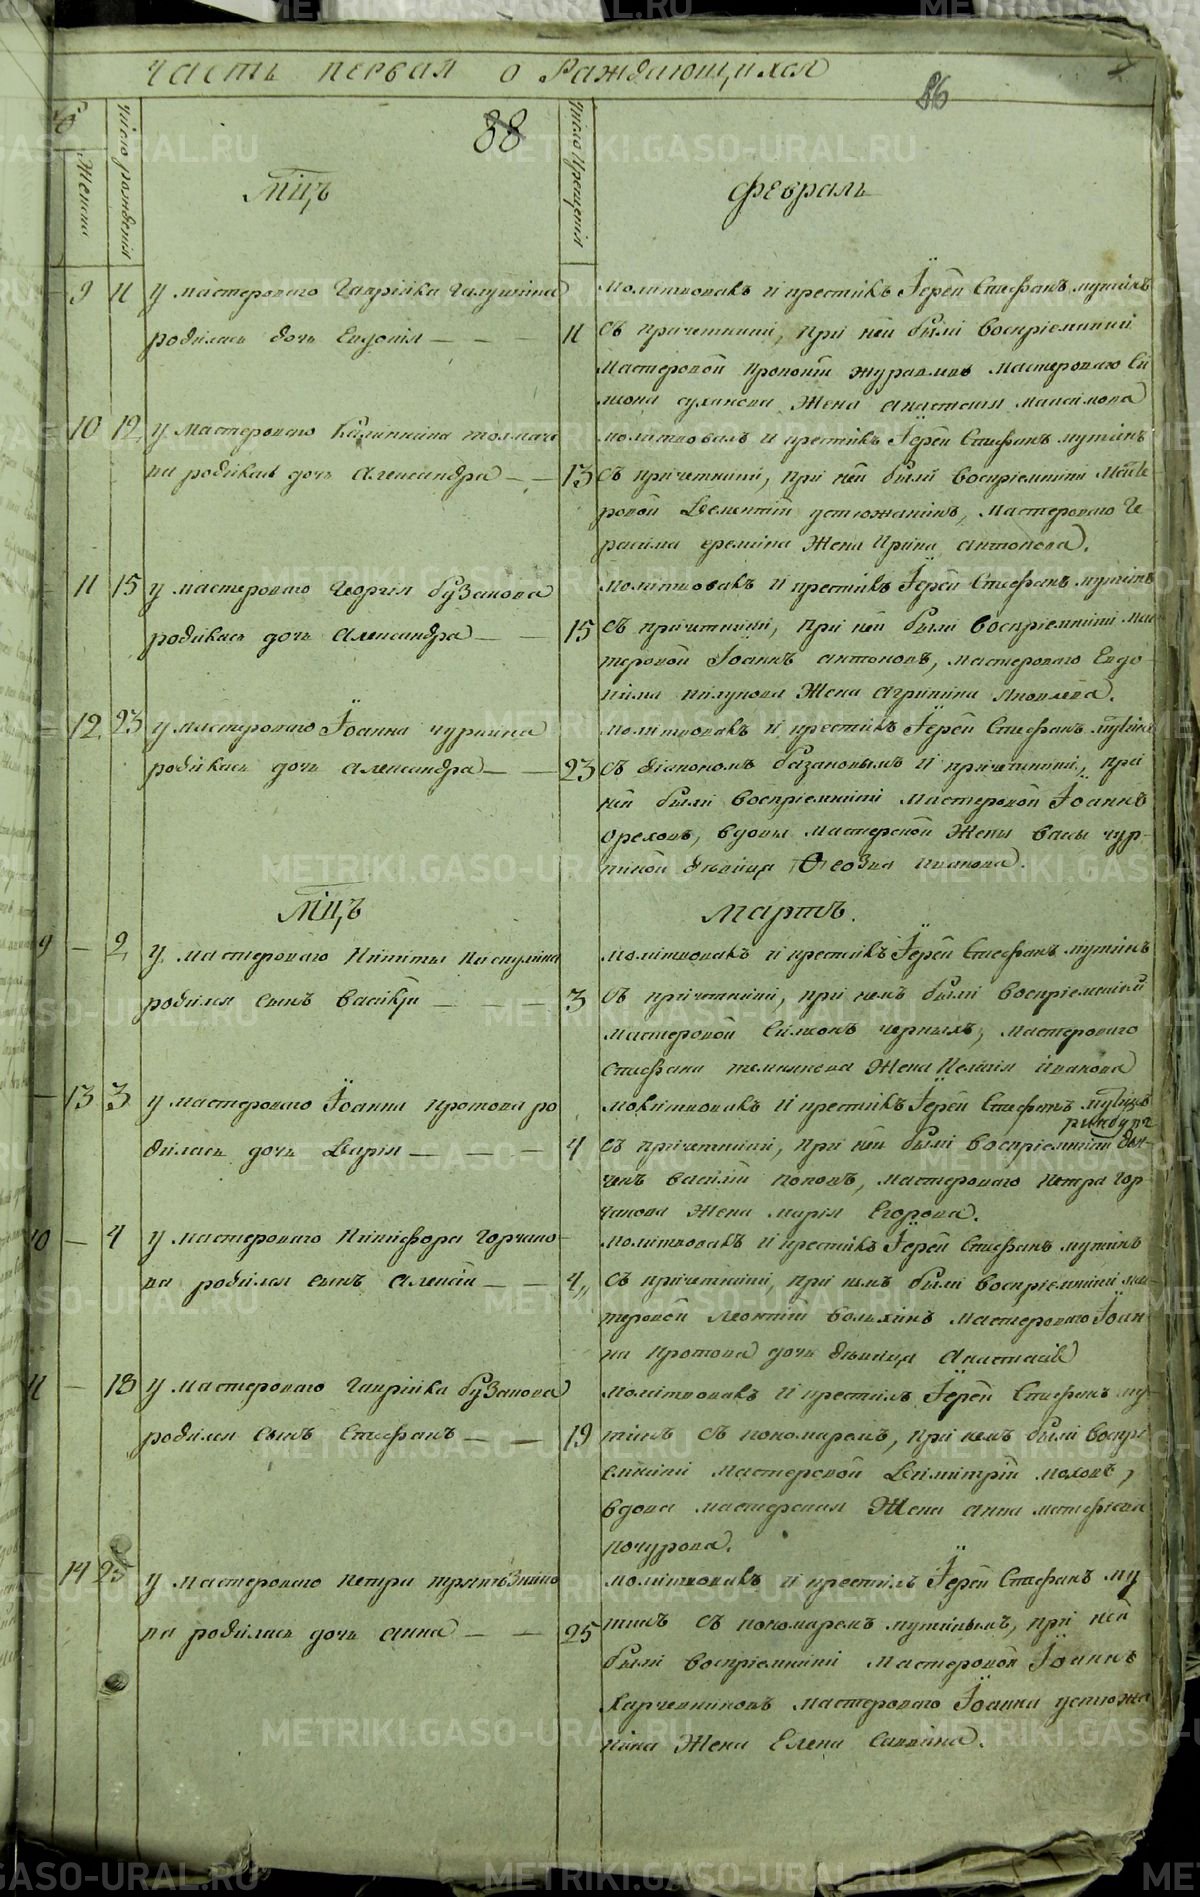 часть первая о Раждающихся
86
88
Женска
число рождения
Число крещения
Мцъ
Февраль
9 11 у мастероваго Гаврійла Галушина
родилась дочь Евдокія
11
молитвовалъ и крестилъ Їерей Стефанъ мутинъ
съ причетники, при ней были воспріемники
мастеровой прокопій журавлевъ мастероваго Си
меона суханова Жена анастасия максимова
10 12 у мастероваго Калинника толмаче
ва родилась дочь александра
13
молитвовалъ и крестилъ Їерей Стефанъ мутинъ
съ причетники, при ней были воспріемники масте
ровой Дементій устюжанинъ, мастероваго Ге
расима еремина Жена Ирина антонова.
11 15 у мастероваго Георгія бузанова
родилась дочь александра
15
молитвовалъ и крестилъ Їерей Стефанъ мутинъ
съ причетники, при ней были воспріемники мас
теровой Їоаннъ антоновъ, мастероваго Евдо
кима пилунова Жена агрипина яковлева.
12 23 у мастероваго Їоанна чуркина
родилась дочь александра
23
молитвовалъ и крестилъ Їерей Стефанъ мутинъ
съ діакономъ базановымъ и причетники, при
ней были воспріемники мастеровой Їоаннъ
Ореховъ, вдовы мастерской Жены вассы чур
киной дѣвица Ѳеозва иванова.
Мцъ
Мартъ.
9 — 2 у мастероваго Никиты Паскулина
родился сынъ василій
3
молитвовалъ и крестилъ Їерей Стефанъ мутинъ
съ причетники, при немъ были воспріемники
мастеровой Симеонъ черныхъ, мастероваго
Стефана темникова Жена Пелагія иванова
13 3 у мастероваго Їоанна протова ро
дилась дочь Дарія
4
молитвовалъ и крестилъ Їерей Стефанъ мутинъ
съ причетники, при ней были воспріемники
василій поповъ, мастероваго петра гор
чакова Жена марія Егорова.
10 — 4 у мастероваго Никифора горчако
ва родился сынъ алексій
4
молитвовалъ и крестилъ Їерей Стефанъ мутинъ
съ причетники, при немъ были воспріемники мас
теровой леонтій вольхинъ мастероваго Їоан
на протова дочь дѣвица анастасія
11 — 18 у мастероваго гаврійла бузанова
родился сынъ Стефанъ
19
молитвовалъ и крестилъ Їерей Стефанъ му
тинъ съ пономаремъ, при немъ были воспрі
емники мастерской Димитрій моховъ,
вдова мастерская Жена анна матфеева
почурова.
14 25 у мастероваго петра
ва родилась дочь анна
25
молитвовалъ и крестилъ Їерей Стефанъ му
тинъ съ пономаремъ мутинымъ, при ней
были воспріемники мастеровой Їоаннъ
Харчевниковъ мастероваго Їоанна устюжа
нина Жена Елена Саввина.
METRIKI.GASO-URAL.RU